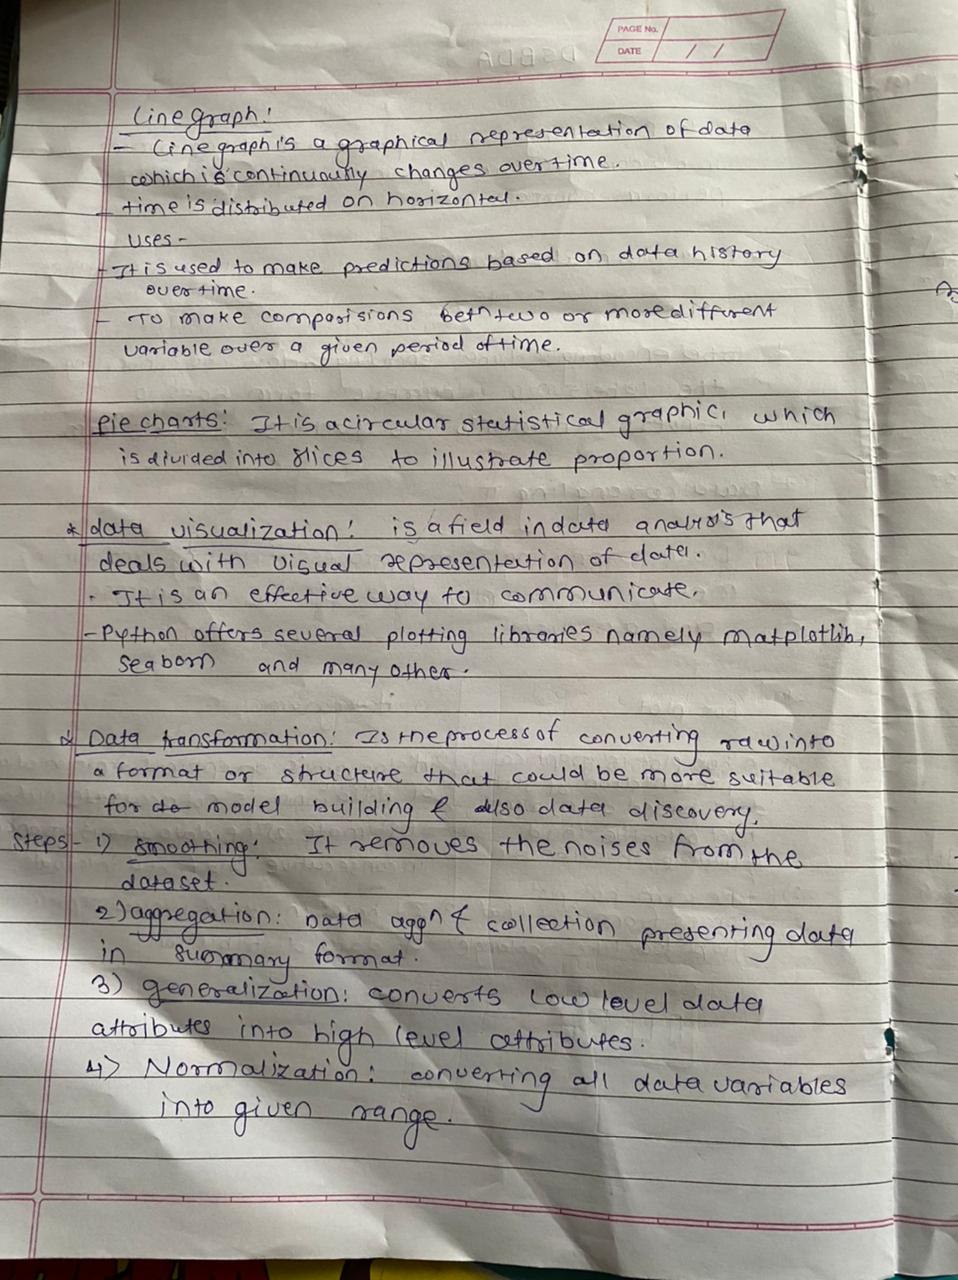 PAGE No.
DATE / /
Line graph:
- Line graph is a graphical representation of data
which is continuously changes over time.
- time is distributed on horizontal.
uses -
- It is used to make predictions based on data history
over time.
- To make comparisions betn two or more different
variable over a given period of time.
Pie charts: It is a circular statistical graphic, which
is divided into slices to illustrate proportion.
* data visualization: is a field in data analysis that
deals with visual representation of data.
. It is an effective way to communicate.
- Python offers several plotting libraries namely matplotlib,
seaborn and many other.
* Data transformation: Is the process of converting raw into
a format or structure that could be more suitable
for do model building & also data discovery.
Steps - 1) smoothing: It removes the noises from the
dataset.
2) aggregation: Data aggn & collection presenting data
in summary format.
3) generalization: converts low level data
attributes into high level attributes.
4) Normalization: converting all data variables
into given range.